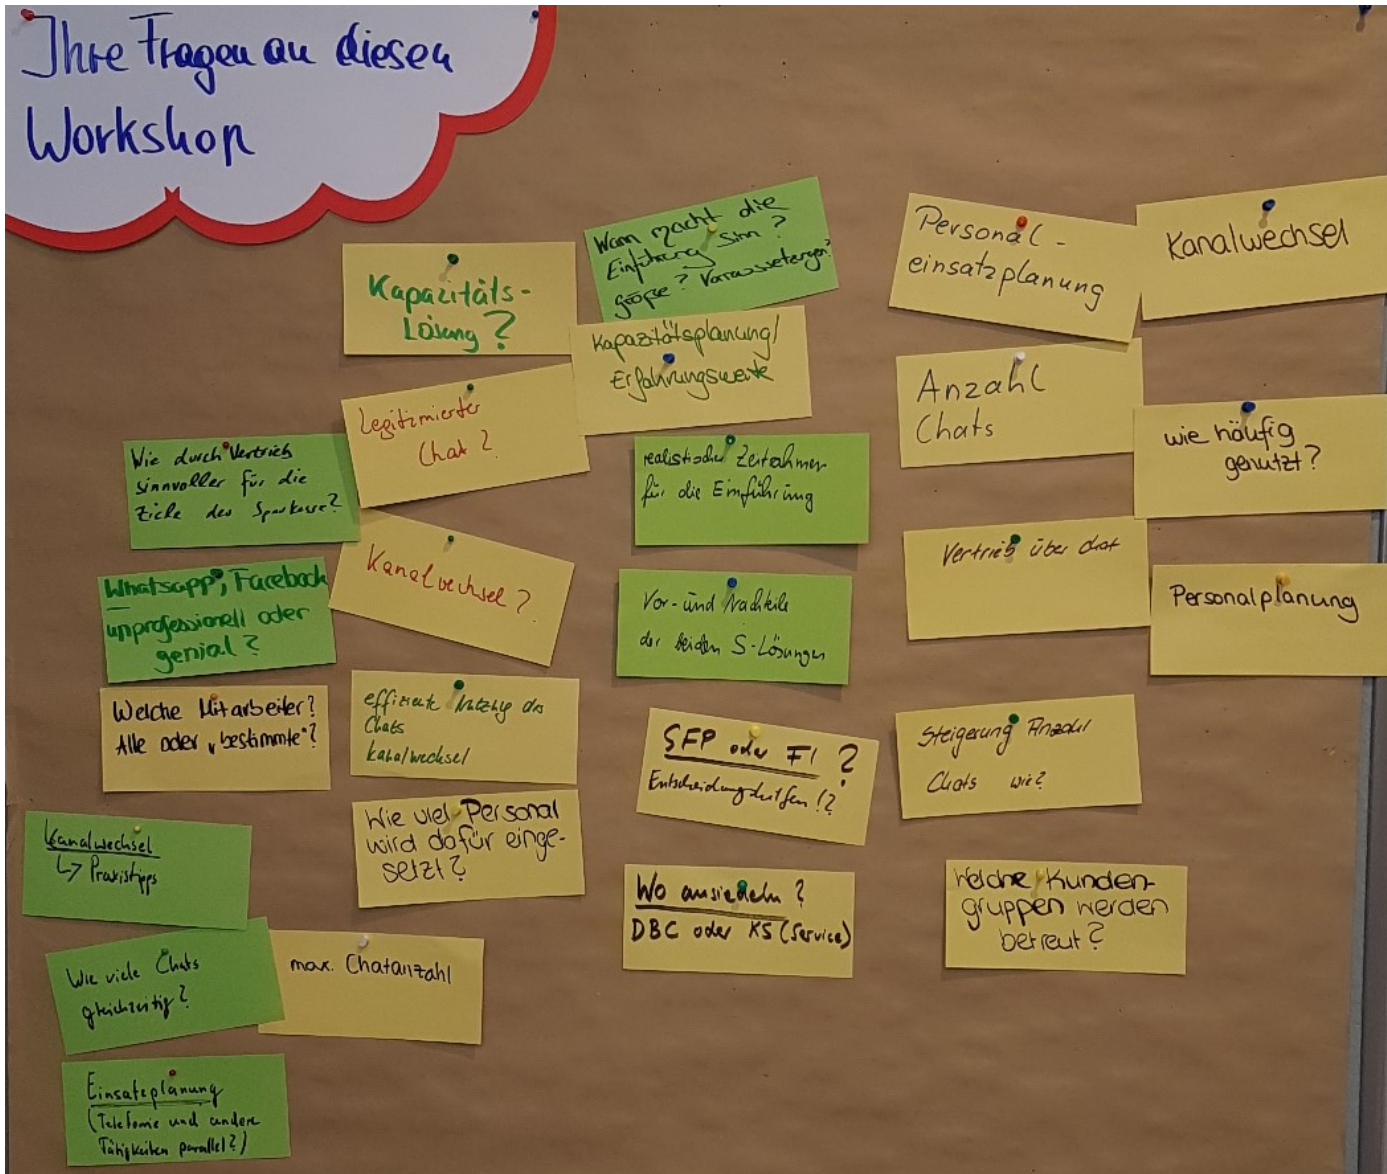 Ihre Fragen an diesen
Workshop
Kapazitäts-
Lösung?
Wann macht die
Einführung Sinn?
größe? Voraussetzungen?
Kapazitätsplanung/
Erfahrungswerte
Personal-
einsatzplanung
Kanalwechsel
Legitimierter
Chat?
Anzahl
Chats
wie häufig
genutzt?
Wie durch Vertrieb
sinnvoller für die
Ziele der Sparkasse?
realistischer Zeitrahmen
für die Einführung
Kanalwechsel?
Vertrieb über Chat
Whatsapp, Facebook
unprofessionell oder
genial?
Vor- und Nachteile
der beiden S-Lösungen
Personalplanung
Welche Mitarbeiter?
Alle oder „bestimmte"?
effiziente Nutzung des
Chats
Kanalwechsel
SFP oder FI?
Entscheidungshilfen!?
Steigerung Anzahl
Chats wie?
Kanalwechsel
↳ Praxistipps
Wie viel Personal
wird dafür einge-
setzt?
Wo ansiedeln?
DBC oder KS (Service)
Welche Kunden-
gruppen werden
betreut?
Wie viele Chats
gleichzeitig?
max. Chatanzahl
Einsatzplanung
(Telefonie und andere
Tätigkeiten parallel?)